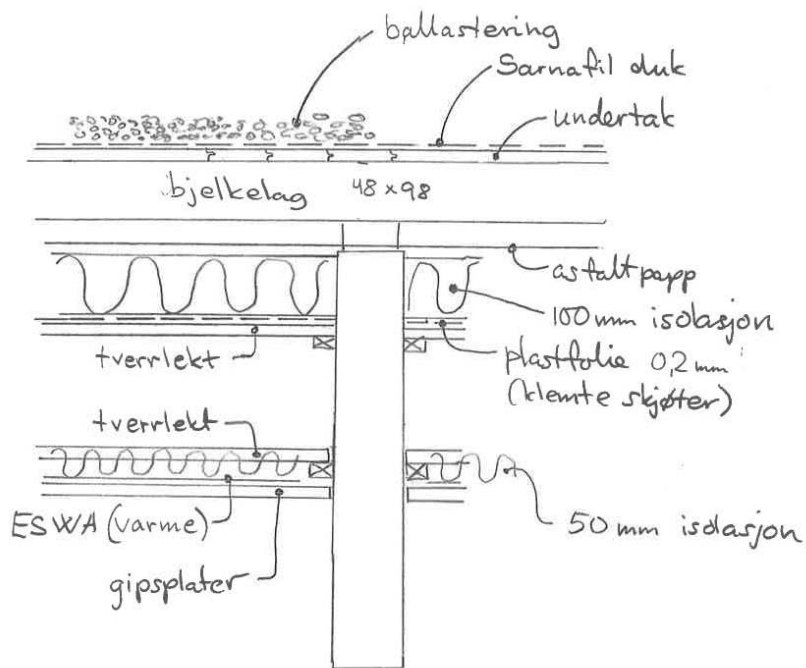 ballastering
Sarnafil duk
undertak
bjelkelag 48 x 98
asfaltpapp
100 mm isolasjon
tverrlekt
plastfolie 0,2 mm
(klemte skjøter)
tverrlekt
ESWA (varme)
50 mm isolasjon
gipsplater